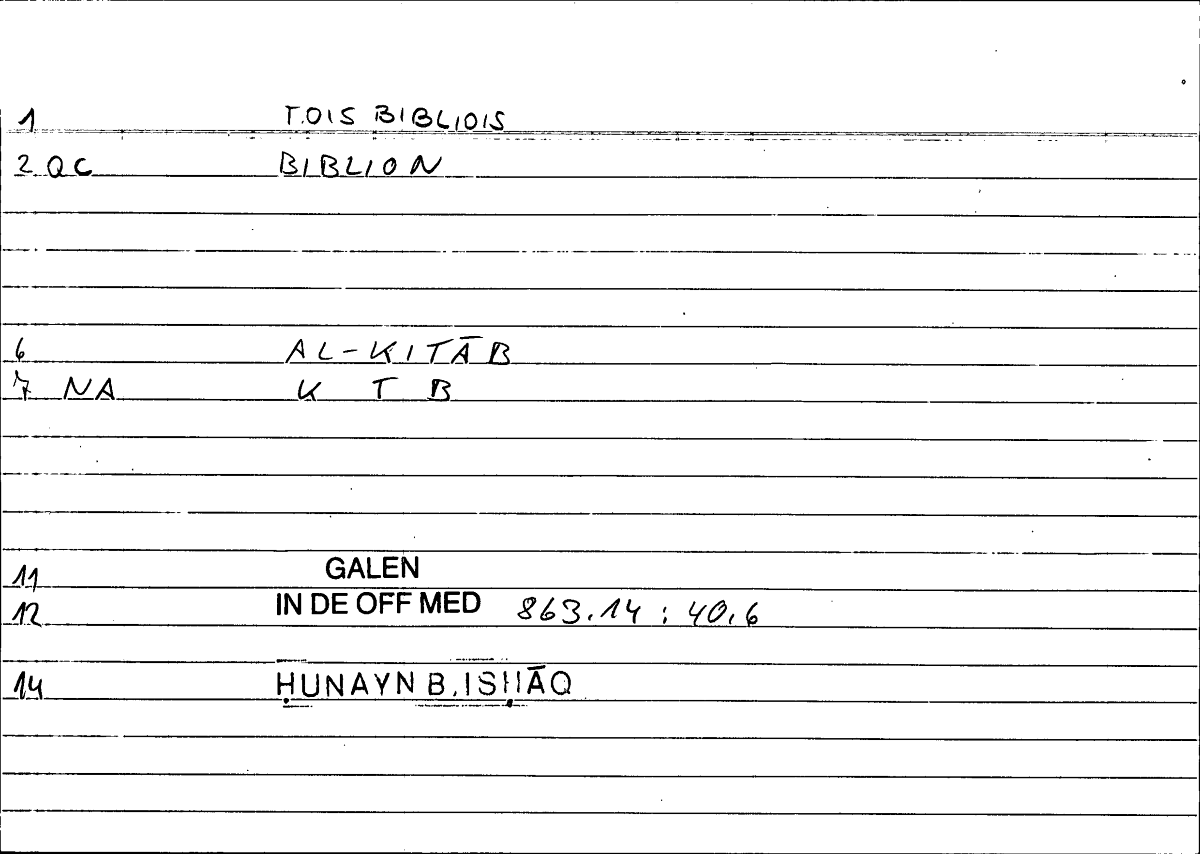 1 TOIS BIBLIOIS
2 QC BIBLION
6 AL-KITĀB
7 NA K T B
11 GALEN
12 IN DE OFF MED 863.14 : 40.6
14 ḤUNAYN B. ISḤĀQ